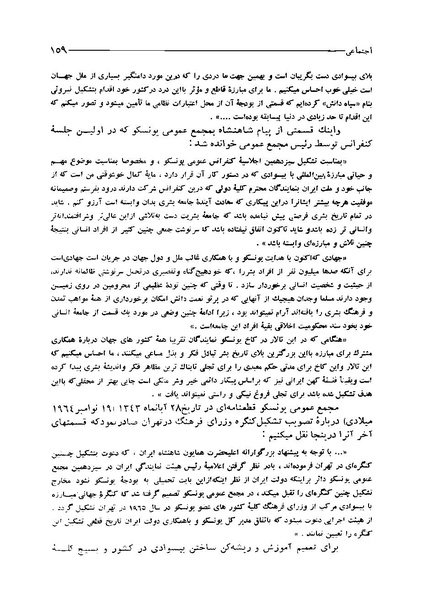 اجتماعی ۱۵۹
بلای بیسوادی دست بگریبان است و بهمین جهت ما دردی را که درین مورد دامنگیر بسیاری از ملل جهان
است خیلی خوب احساس میکنیم . ما برای مبارزهٔ قاطع و مؤثر بااین درد درکشور خود اقدام بتشکیل نیروئی
بنام «سپاه دانش» کرده‌ایم که قسمتی از بودجهٔ آن از محل اعتبارات نظامی ما تأمین میشود و تصور میکنم که
این اقدام تا حد زیادی در دنیا بیسابقه بوده‌است ....» .
واینک قسمتی از پیام شاهنشاه بمجمع عمومی یونسکو که در اولین جلسهٔ
کنفرانس توسط رئیس مجمع عمومی خوانده شد :
«بمناسبت تشکیل سیزدهمین اجلاسیهٔ کنفرانس عمومی یونسکو ، و مخصوصا بمناسبت موضوع مهم
و حیاتی مبارزهٔ بین‌المللی با بیسوادی که در دستور کار آن قرار دارد ، مایهٔ کمال خوشوقتی من است که از
جانب خود و ملت ایران بنمایندگان محترم کلیهٔ دولی که درین کنفرانس شرکت دارند درود بفرستم وصمیمانه
موفقیت هرچه بیشتر ایشانرا دراین پیکاری که سعادت آیندهٔ جامعهٔ بشری بدان وابسته است آرزو کنم . شاید
در تمام تاریخ بشری فرصتی پیش نیامده باشد که جامعهٔ بشریت دست به‌تلاشی ازاین عالی‌تر وشرافتمندانه‌تر
وانسانی تر زده باشدو شاید تاکنون اتفاق نیفتاده باشد که سرنوشت جمعی چنین کثیر از افراد انسانی بنتیجهٔ
چنین تلاش و مبارزه‌ای وابسته باشد» .
«جهادی که‌اکنون با هدایت یونسکو و با همکاری غالب ملل و دول جهان در جریان است جهادی‌است
برای آنکه صدها میلیون نفر از افراد بشررا، که خودهیچ‌گناه وتقصیری درتحمل سرنوشتی ظالمانه ندارند،
از حیثیت و شخصیت انسانی برخوردار سازد . تا وقتی که چنین تودهٔ عظیمی از محرومین در روی زمین
وجود دارند مسلما وجدان هیچیک از آنهایی که در پرتو نعمت دانش امکان برخورداری از همهٔ مواهب تمدن
و فرهنگ بشری را یافته‌اند آرام نمیتواند بود ، زیرا ادامهٔ چنین وضعی در مورد یک قسمت از جامعهٔ انسانی
خود بخود سند محکومیت اخلاقی بقیهٔ افراد این جامعه‌است.»
«هنگامی که در این تالار در کاخ یونسکو نمایندگان تقریبا همهٔ کشور های جهان دربارهٔ همکاری
مشترک برای مبارزه بااین بزرگترین بلای تاریخ بشر تبادل فکر و بذل مساعی میکنند ، ما احساس میکنیم که
این تالار واین کاخ برای مدتی حکم معبدی را برای تجلی تابناک ترین مظاهر فکر واندیشهٔ بشری پیدا کرده
است ویقینا فلسفهٔ کهن ایرانی نیز که براساس پیکار دائمی خیر وشر متکی است جایی بهتر از محفلی‌که بااین
هدف تشکیل شده باشد برای تجلی فروغ یزدانی و راستی نمیتواند یافت» .
مجمع عمومی یونسکو قطعنامه‌ای در تاریخ۲۸ آبانماه ۱۳۴۳ (۱۹ نوامبر ۱۹۶۴
میلادی) دربارهٔ تصویب تشکیل‌کنگره وزرای فرهنگ درتهران صادرنمودکه قسمتهای
آخر آنرا دراینجا نقل میکنیم :
«... با توجه به پیشنهاد بزرگوارانه اعلیحضرت همایون شاهنشاه ایران، که دعوت بتشکیل چنین
کنگره‌ای در تهران فرموده‌اند، بادر نظر گرفتن اعلامیهٔ رئیس هیئت نمایندگی ایران در سیزدهمین مجمع
عمومی یونسکو دائر براینکه دولت ایران از نظر اینکه‌ازاین بابت تحمیلی به بودجهٔ یونسکو نشود مخارج
تشکیل چنین کنگره‌ای را تقبل میکند، در مجمع عمومی یونسکو تصمیم گرفته شد که کنگرهٔ جهانی مبارزه
با بیسوادی مرکب از وزرای فرهنگ کلیهٔ کشور های عضو یونسکو در سال ۱۹۶۵ در تهران تشکیل گردد .
از هیئت اجرایی دعوت میشود که باتفاق مدیر کل یونسکو و باهمکاری دولت ایران تاریخ قطعی تشکیل این
کنگره را تعیین نمایند . »
برای تعمیم آموزش و ریشه‌کن ساختن بیسوادی در کشور و بسیج کلیهٔ